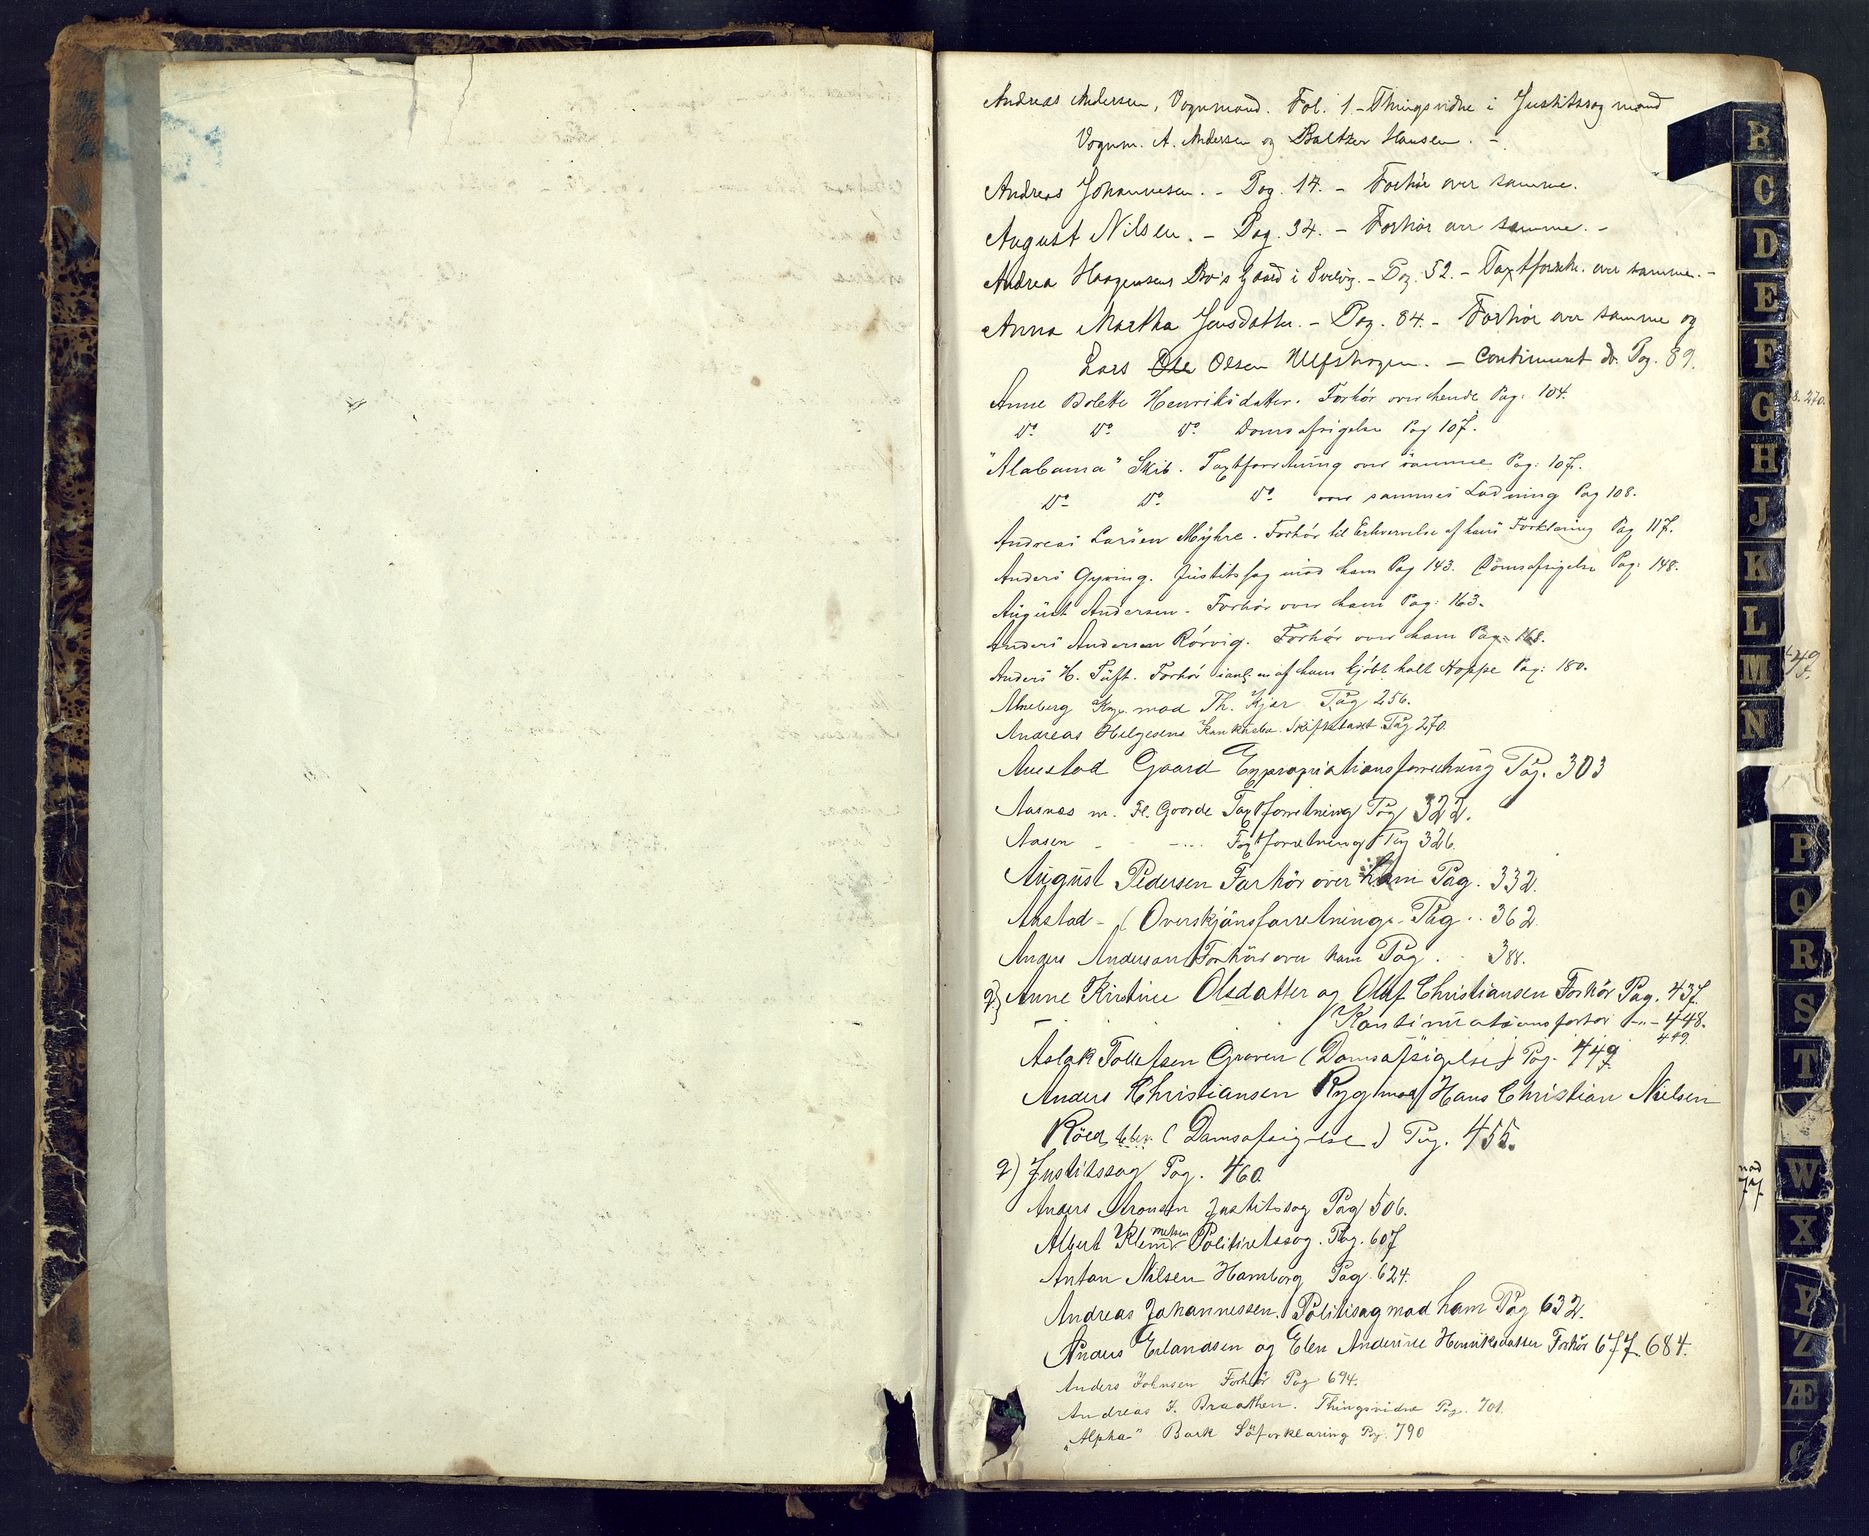 Andreas Andersen, Vognmand. Fol. 1 - Thingsvidne i Justitssag mod
Vognm. A. Andersen og Baltzer Hansen. -
Andreas Johannesen. - Pag. 14. - Forhör over samme.
August Nilsen. - Pag. 34. - Forhör over samme. -
Andrea Haagensens Bo's Gaard i Svelvig. - Pag. 52. - Taxtforretn. over samme. -
Anna Martha Jensdatter. - Pag. 84. - Forhör over samme og
Lars Ole Olsen Ulfshagen. - Continueret do. Pag. 89.
Anne Bolette Henriksdatter. Forhör over hende Pag: 104.
Do Do Do Domsafsigelse Pag 107.
"Alabama" Skib. Taxtforretning over samme Pag: 107.
Do Do Do over sammes Ladning Pag 108.
Andreas Larsen Myhre. Forhör til Erhvervelse af hans Forklaring Pag 117.
Anders Gyving. Justitssag mod ham Pag 143. Domsafsigelse Pag: 148.
August Andersen. Forhör over ham Pag: 163.
Anders Andersen Rörvig. Forhör over ham Pag: 168.
Anders H. Tuft. Forhör af ham kjöbt halt Hoppe Pag: 180.
Almeberg mod Th. Kjær Pag 256.
Andreas Helgesens Skiftetaxt Pag 270.
Austad Gaard Expropriationsforretning Pag. 303
Aasnæs m. Fl. Gaarde Taxtforretning Pag 322.
Aasen - - ... Taxtforretning Pag 326.
August Pedersen Forhör over ham Pag. 332.
Austad - (Overskjönsforretning. Pag. 362
Anders Andersen Forhör over ham Pag. 388.
2) Anne Kirstine Olsdatter og Olaf Christiansen Forhör Pag. 437.
Kontinuationsforhör - " - 448.
449
Aslak Tollefsen Groven (Domsafsigelse) Pag. 449
Anders Christiansen Ryg mod Hans Christian Nielsen
Röed (Domsafsigelse) Pag. 455.
2) Justitssag Pag. 460
Anders Aronsen Justitssag Pag 506.
Albert Klemmetsen Politiretssag. Pag. 607
Anton Nilsen Hamborg Pag. 624.
Andreas Johannessen. Politisag mod ham Pag 632.
Anders Erlandsen og Elen Andrine Henriksdatter Forhör 677. 684.
Anders Johnsen Forhör Pag 694.
Andreas J. Braathen. Thingsvidne Pag. 701.
"Alpha" Bark Söforklaring Pag. 790
B
C
D
E
F
G
H
J
K
L
M
N
P
Q
R
S
T
W
X
Y
Z
Æ
270.
49
mod
77